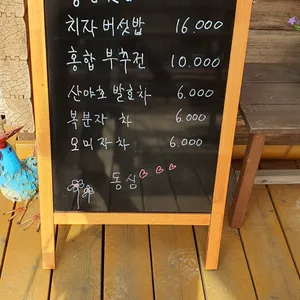 치자 버섯밥 16.000
홍합 부추전 10.000
산야초 발효차 6.000
복분자 차 6.000
오미자 차 6.000
동심